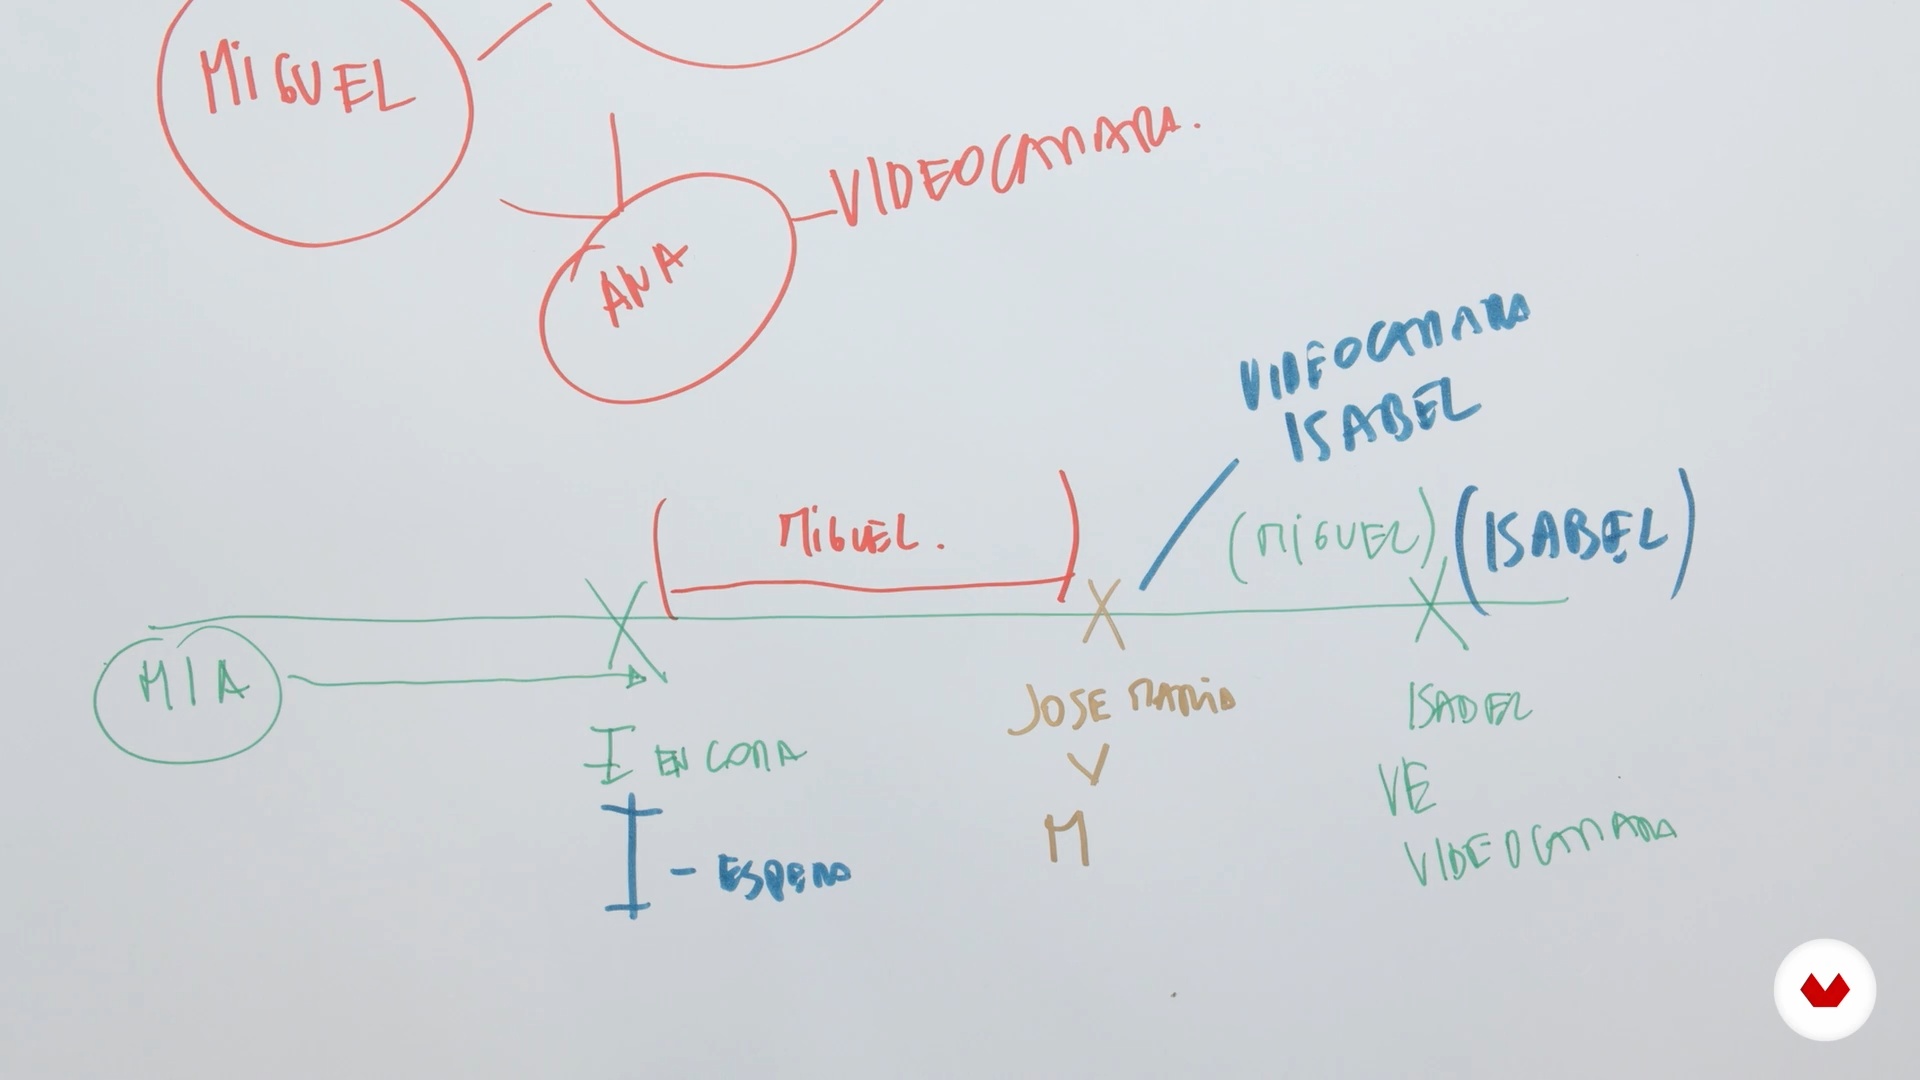 MIGUEL
VIDEOCAMARA.
ANA
VIDEOCAMARA
ISABEL
MIGUEL.
(MIGUEL)
(ISABEL)
MIA
I EN COMA
JOSE MARIA
ISABEL
V
VE
M
VIDEOCAMARA
I - ESPERA